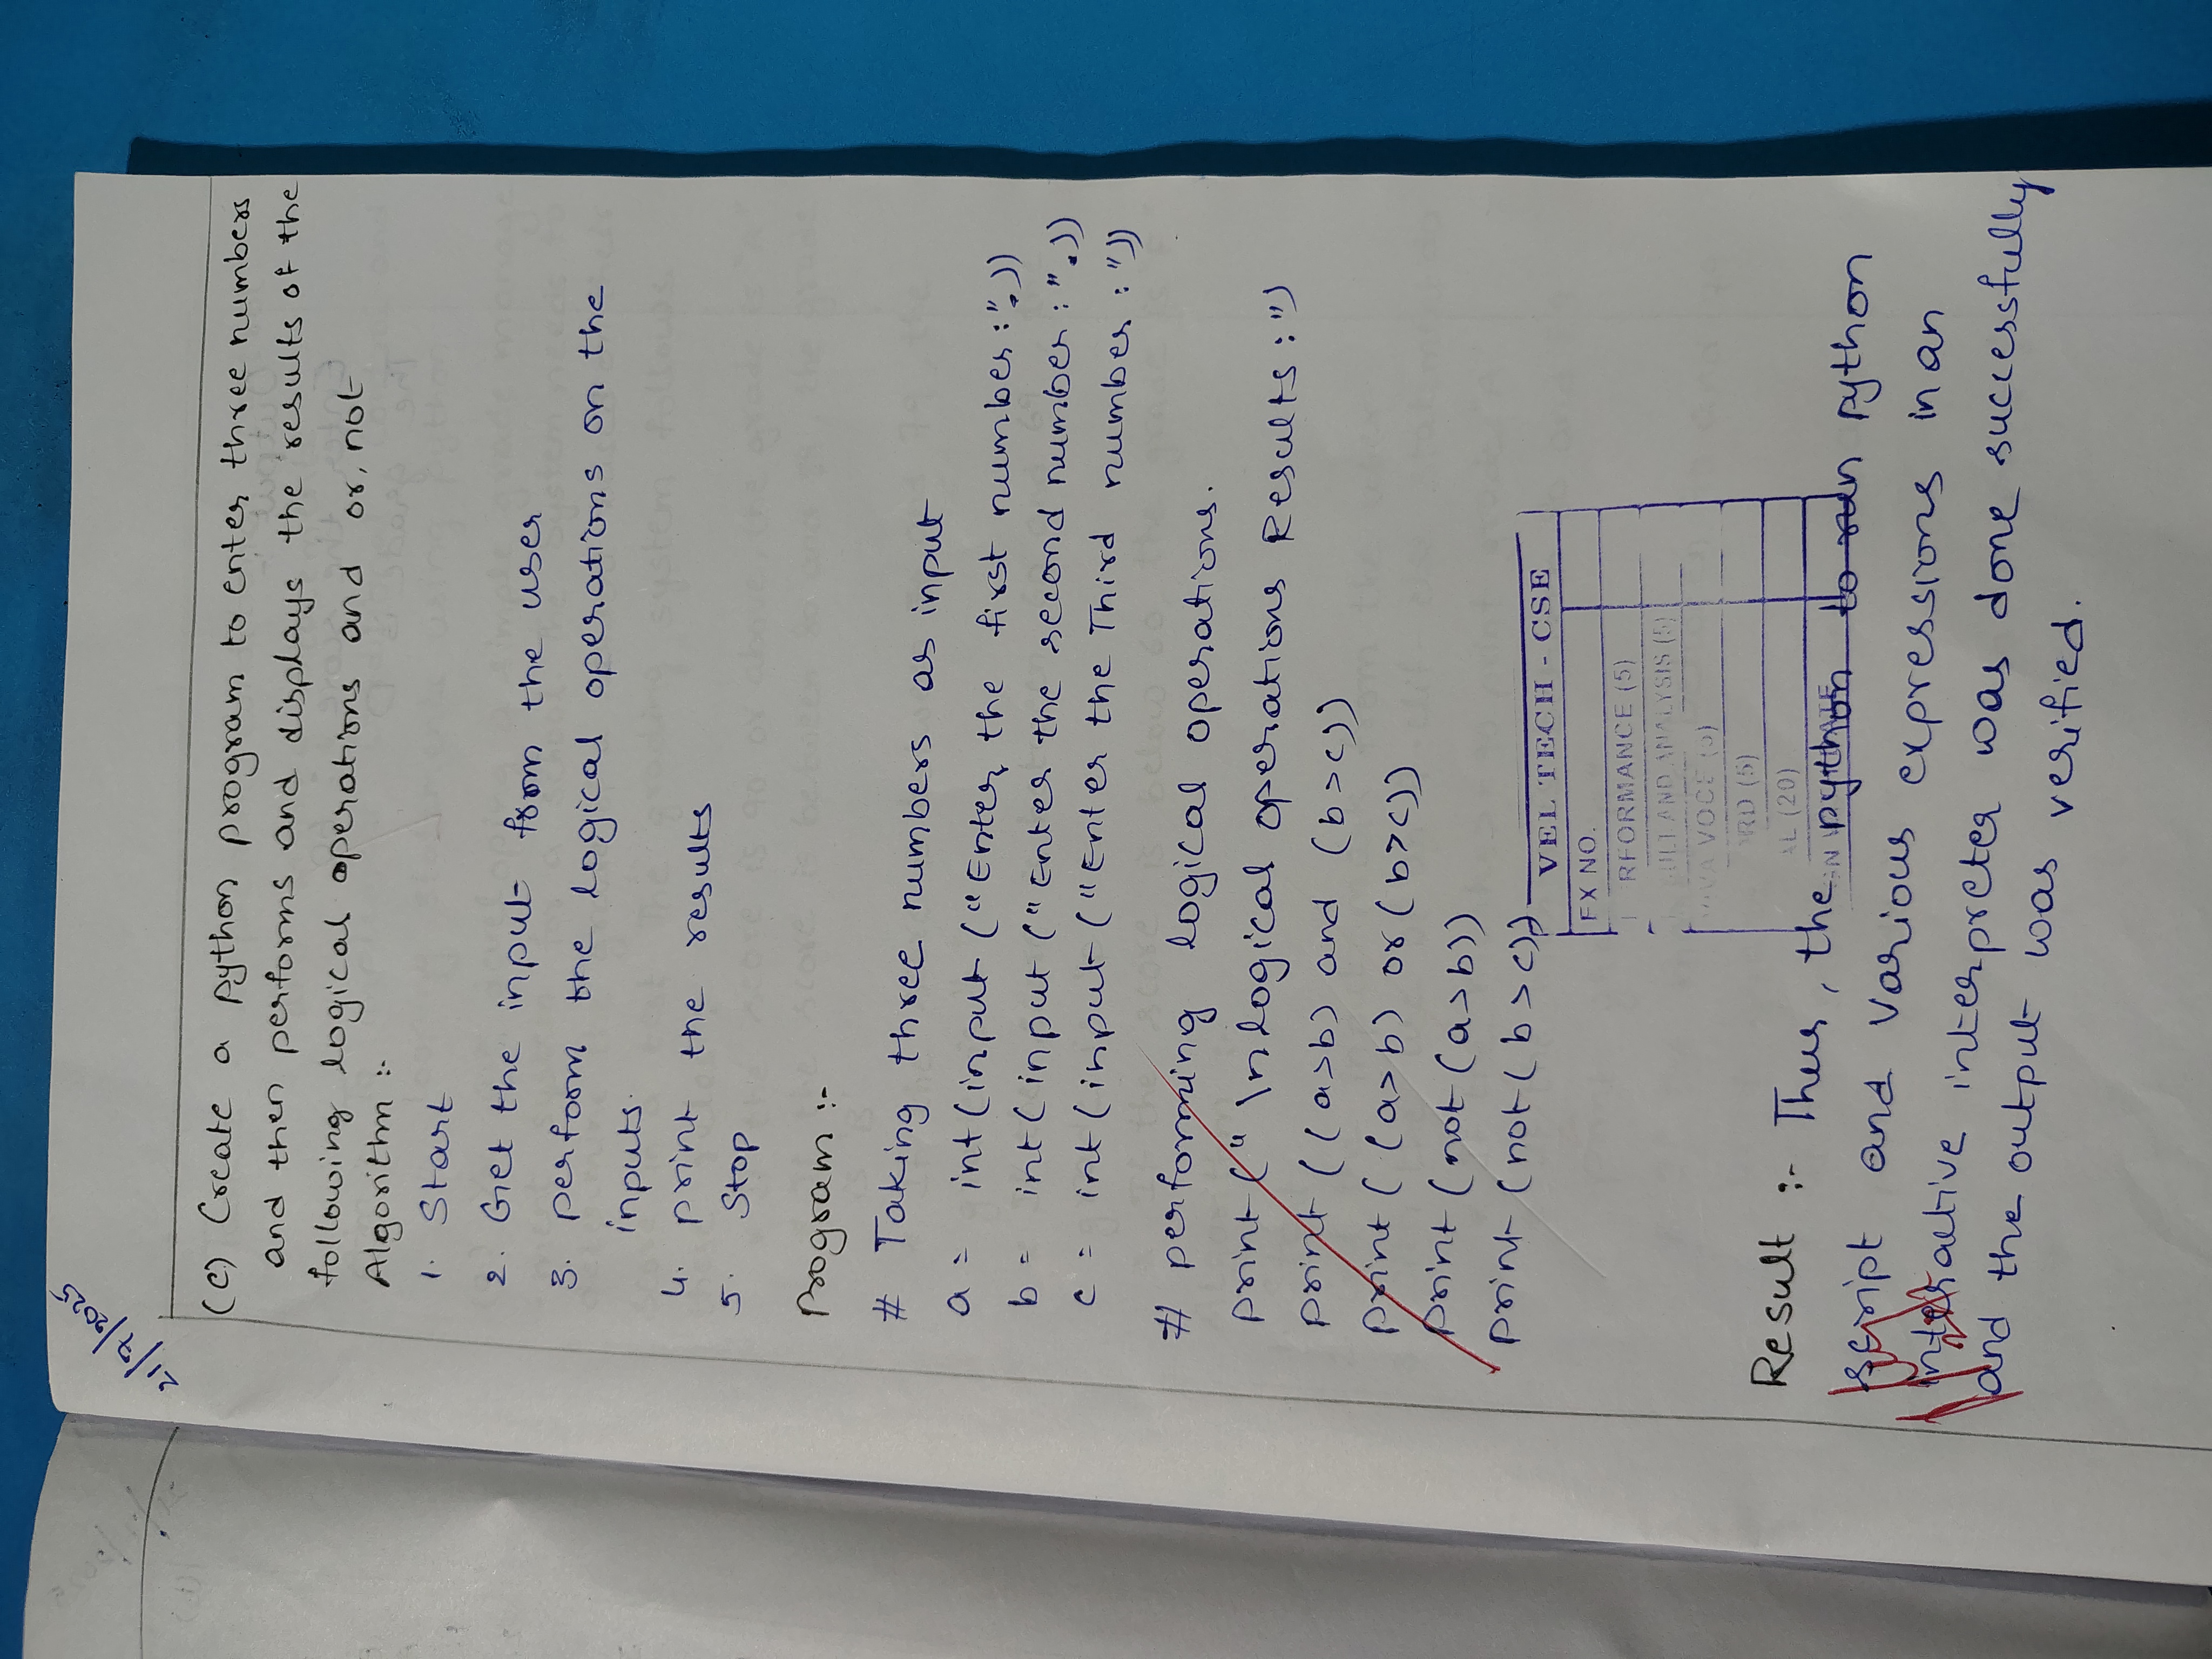 21/7/2025
(c) Create a python program to enter three numbers
and then performs and displays the results of the
following logical operations and or, not
Algorithm :-
1. Start
2. Get the input from the user
3. perform the logical operations on the
inputs.
4. print the results
5. Stop
Program :-
# Taking three numbers as input
a = int(input ("Enter the first number:".))
b = int(input ("Enter the second number:".))
c = int(input ("Enter the Third number:"))
# performing logical operations.
print (" \nlogical operations Results:")
print ((a>b) and (b>c))
print ((a>b) or (b>c))
print (not (a>b))
print (not (b>c))
VEL TECH - CSE
EX NO.
RFORMANCE (5)
ULT AND ANALYSIS (5)
VIVA VOCE (5)
RD (5)
AL (20)
Result :- Thus, the python to run python
script and various expressions in an
interactive interpreter was done successfully
and the output was verified.